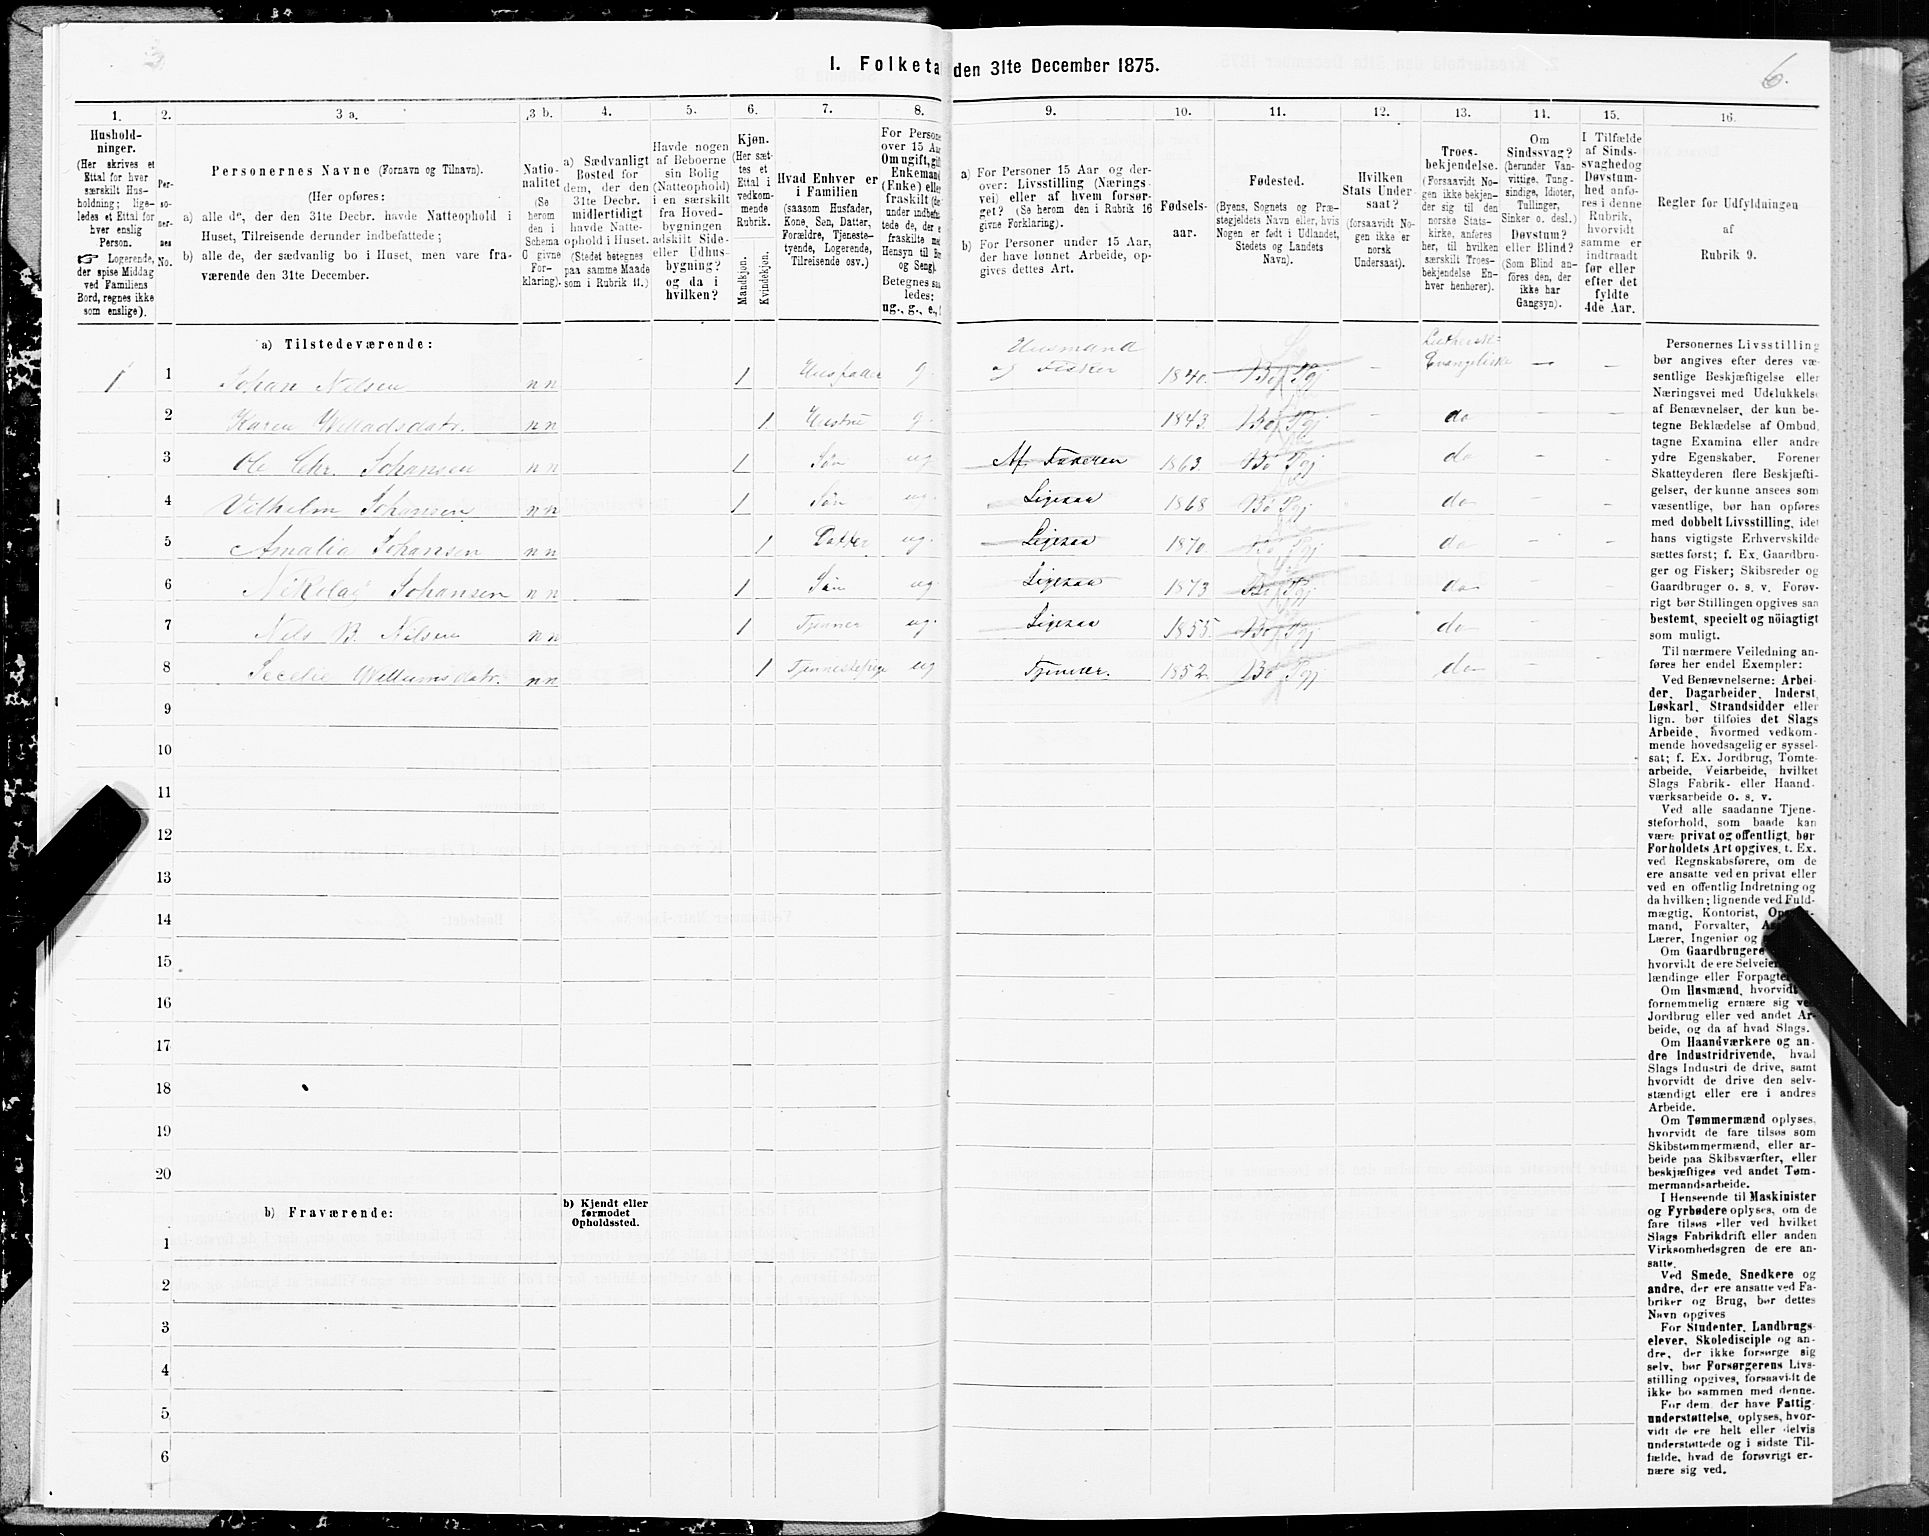 I. Folketa den 31te December 1875.
6.
1. 2. 3 a. 3 b. 4. 5. 6. 7. 8. 9. 10. 11. 12. 13. 14. 15. 16.
Hushold-
ninger.
(Her skrives et
Ettal for hver
særskilt Hus-
holdning; lige-
ledes et Ettal for
hver enslig
Person.
☞ Logerende,
der spise Middag
ved Familiens
Bord, regnes ikke
som enslige).
Per-
so-
ner-
nes
No.
Personernes Navne (Fornavn og Tilnavn).
(Her opføres:
a) alle de, der den 31te Decbr. havde Natteophold i
Huset, Tilreisende derunder indbefattede;
b) alle de, der sædvanlig bo i Huset, men vare fra-
værende den 31te December.
Natio-
nalitet
(Se
herom
den i
Schema
C givne
For-
klaring).
a) Sædvanligt
Bosted for
dem, der den
31te Decbr.
midlertidigt
havde Natte-
ophold i Huset.
(Stedet betegnes
paa samme Maade
som i Rubrik 11.)
Havde nogen
af Beboerne
sin Bolig
(Natteophold)
i en særskilt
fra Hoved-
bygningen
adskilt Side-
eller Udhus-
bygning?
og da i
hvilken?
Kjøn.
(Her sæt-
tes et
Ettal i
vedkom-
mende
Rubrik.
Mandkjøn.
Kvindekjøn.
Hvad Enhver er
i Familien
(saasom Husfader,
Kone, Søn, Datter,
Forældre, Tjeneste-
tyende, Logerende,
Tilreisende osv.)
For Persone
over 15 Aar
Om ugift, gif
Enkemand
(Enke) elle
fraskilt (de
under indbefat
tede de, der e
fraskilte me
Hensyn til Bo
og Seng).
Betegnes saa
ledes:
ug., g., e., f
a) For Personer 15 Aar og der-
over: Livsstilling (Nærings-
vei) eller af hvem forsør-
get? (Se herom den i Rubrik 16
givne Forklaring).
b) For Personer under 15 Aar,
der have lønnet Arbeide, op-
gives dettes Art.
Fødsels-
aar.
Fødested.
(Byens, Sognets og Præ-
stegjeldets Navn eller, hvis
Nogen er født i Udlandet,
Stedets og Landets
Navn).
Hvilken
Stats Under-
saat?
(forsaavidt No-
gen ikke er
norsk
Undersaat).
Troes-
bekjendelse.
(Forsaavidt No-
gen ikke bekjen-
der sig til den
norske Stats-
kirke, anføres
her, til hvilken
særskilt Troes-
bekjendelse En-
hver henhører).
Om
Sindssvag?
(herunder Van-
vittige, Tung-
sindige, Idioter,
Tullinger,
Sinker o. desl.)
Døvstum?
eller Blind?
(Som Blind an-
føres den, der
ikke har
Gangsyn).
I Tilfælde
af Sinds-
svaghed og
Døvstum-
hed anfø-
res i denne
Rubrik,
hvorvidt
samme er
indtraadt
før eller
efter det
fyldte
4de Aar.
Regler for Udfyldningen
af
Rubrik 9.
a) Tilstedeværende:
1 1 Johan Nilsen n n 1 Husfader g. Husmand og Fisker 1840. Bø Pgj – Lutherske Evangeliske –
2 Karen Willadsdatr. n n 1 Hustru g. 1843. Bø Pgj – do – –
3 Ole Chr. Johansen n n 1 Søn ug Af Faderen 1863. Bø Pgj do – –
4 Vilhelm Johansen n n 1 Søn ug. Ligesaa 1868 Bø Pgj do – –
5 Amalia Johansen n n 1 Datter ug. Ligesaa 1870. Bø Pgj do – –
6 Nikolay Johansen n n 1 Søn ug Ligesaa 1873 Bø Pgj do – –
7 Nils B. Nilsen n n 1 Tjener ug. Ligesaa 1855. Bø Pgj do – –
8 Secelie Willumsdatr. n n 1 Tjenestepige ug Tjener. 1852. Bø Pgj do – –
9
10
11
12
13
14
15
16
17
18
19
20
b) Fraværende:
b) Kjendt eller
formodet
Opholdssted.
1
2
3
4
5
6
Personernes Livsstilling
bør angives efter deres væ-
sentlige Beskjæftigelse eller
Næringsvei med Udelukkelse
af Benævnelser, der kun be-
tegne Beklædelse af Ombud,
tagne Examina eller andre
ydre Egenskaber. Forener
Skatteyderen flere Beskjæfti-
gelser, der kunne ansees som
væsentlige, bør han opføres
med dobbelt Livsstilling, idet
hans vigtigste Erhvervskilde
sættes først; f. Ex. Gaardbru-
ger og Fisker; Skibsreder og
Gaardbruger o. s. v. Forøv-
rigt bør Stillingen opgives saa
bestemt, specielt og nöiagtigt
som muligt.
Til nærmere Veiledning an-
føres her endel Exempler:
Ved Benævnelserne: Arbei-
der, Dagarbeider, Inderst,
Løskarl, Strandsidder eller
lign. bør tilføies det Slags
Arbeide, hvormed vedkom-
mende hovedsagelig er syssel-
sat; f. Ex. Jordbrug, Tomte-
arbeide, Veiarbeide, hvilket
Slags Fabrik- eller Haand-
værksarbeide o. s. v.
Ved alle saadanne Tjene-
steforhold, som baade kan
være privat og offentligt, bør
Forholdets Art opgives, t. Ex.
ved Regnskabsførere, om de
ere ansatte ved en privat eller
ved en offentlig Indretning og
da hvilken; lignende ved Fuld-
mægtig, Kontorist,
mand, Forvalter,
Lærer, Ingeniør og
Om Gaardbrugere
hvorvidt de ere Selveiere
lændinge eller Forpagter
Om Husmænd, hvorvidt
fornemmelig ernære sig ved
Jordbrug eller ved andet Ar-
beide, og da af hvad Slags.
Om Haandværkere og an-
dre Industridrivende, hvad
Slags Industri de drive, samt
hvorvidt de drive den selv-
stændigt eller ere i andres
Arbeide.
Om Tømmermænd oplyses,
hvorvidt de fare tilsøs som
Skibstømmermænd, eller ar-
beide paa Skibsværfter, eller
beskjæftiges ved andet Tøm-
mermandsarbeide.
I Henseende til Maskinister
og Fyrbødere oplyses, om de
fare tilsøs eller ved hvilket
Slags Fabrikdrift eller anden
Virksomhedsgren de ere an-
satte.
Ved Smede, Snedkere og
andre, der ere ansatte ved Fa-
briker og Brug, bør dettes
Navn opgives
For Studenter, Landbrugs-
elever, Skoledisciple og an-
dre, der ikke forsørge sig
selv, bør Forsørgerens Livs-
stilling opgives, forsaavidt de
ikke bo sammen med denne.
For dem, der have Fattig-
understøttelse, oplyses, hvor-
vidt de ere helt eller delvis
understøttede og i sidste Til-
fælde, hvad de forøvrigt er-
nære sig ved.